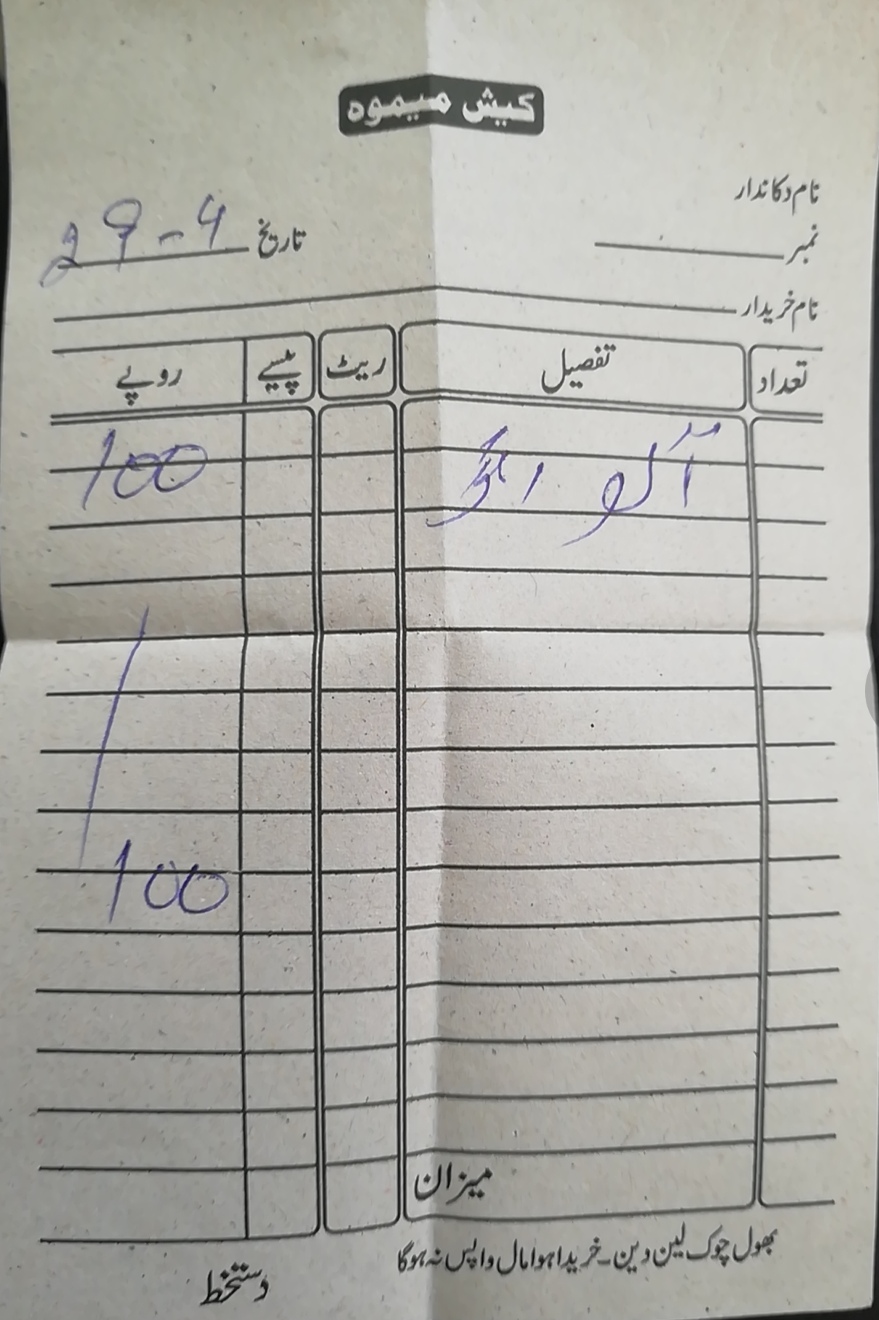 کیش میمو
نام دکاندار
نمبر
تاریخ 29-4
نام خریدار
تعداد تفصیل ریٹ پیسے روپے
آلو 100
100
میزان
بھول چوک لین دین۔ خریدا ہوا مال واپس نہ ہوگا
دستخط